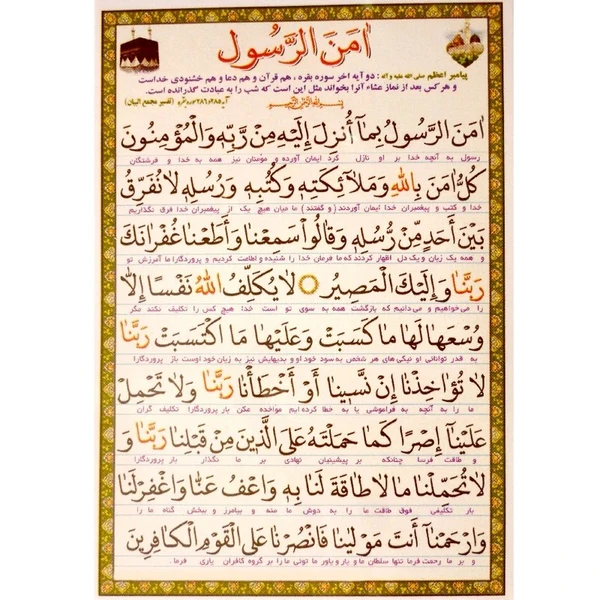 اٰمَنَ الرَّسُول
پیامبر اعظم صلی الله علیه و آله : دو آیه آخر سوره بقره ، هم قرآن و هم دعا و هم خشنودی خداست
و هر کس بعد از نماز عشاء آنرا بخواند مثل این است که شب را به عبادت گذرانده است.
(تفسیر مجمع البیان)
اٰمَنَ الرَّسُولُ بِمٰٓا اُنْزِلَ اِلَيْهِ مِنْ رَبِّهٖ وَالْمُؤْمِنُونَ
رسول به آنچه خدا بر او نازل کرد ایمان آورده و مؤمنان نیز همه به خدا و فرشتگان
كُلٌّ اٰمَنَ بِاللهِ وَمَلٰٓائِكَتِهٖ وَكُتُبِهٖ وَرُسُلِهٖ لٰا نُفَرِّقُ
خدا و کتب و پیغمبران خدا ایمان آوردند (و گفتند) ما میان هیچ یک از پیغمبران خدا فرق نگذاریم
بَيْنَ اَحَدٍ مِنْ رُسُلِهٖ وَقٰالُوا سَمِعْنٰا وَاَطَعْنٰا غُفْرٰانَكَ
و همه یک زبان و یک دل اظهار کردند که ما فرمان خدا را شنیده و اطاعت کردیم و پروردگارا ما آمرزش تو
رَبَّنٰا وَاِلَيْكَ الْمَصِيرُ لٰا يُكَلِّفُ اللهُ نَفْسًا اِلّٰا
را می‌خواهیم و می‌دانیم که بازگشت همه به سوی تو است خدا هیچ کس را تکلیف نکند مگر
وُسْعَهٰا لَهٰا مٰا كَسَبَتْ وَعَلَيْهٰا مٰا اكْتَسَبَتْ رَبَّنٰا
به قدر توانائی او نیکی های هر شخص به سود خود او و بدیهایش نیز به زیان خود اوست باز پروردگارا
لٰا تُؤٰاخِذْنٰا اِنْ نَسٖينٰا اَوْ اَخْطَأْنٰا رَبَّنٰا وَلٰا تَحْمِلْ
ما را به آنچه به فراموشی یا به خطا کرده ایم مواخذه مکن بار پروردگارا تکلیف گران
عَلَيْنٰا اِصْرًا كَمٰا حَمَلْتَهُ عَلَى الَّذٖينَ مِنْ قَبْلِنٰا رَبَّنٰا وَ
و طاقت فرسا چنانکه بر پیشینیان نهادی بر ما نگذار بار پروردگارا
لٰا تُحَمِّلْنٰا مٰا لٰا طٰاقَةَ لَنٰا بِهٖ وَاعْفُ عَنّٰا وَاغْفِرْلَنٰا
بار تکلیفی فوق طاقت ما را به دوش ما منه و بیامرز و ببخش گناه ما را
وَارْحَمْنٰا اَنْتَ مَوْلٰينٰا فَانْصُرْنٰا عَلَى الْقَوْمِ الْكٰافِرٖينَ
و بر ما رحمت فرما تنها سلطان ما و یار و یاور ما توئی ما را بر گروه کافران یاری فرما.